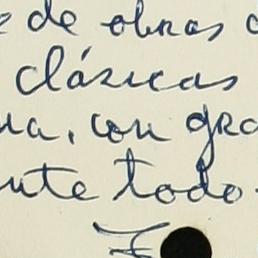 e de obras
clásicas
, con gra
nte todo